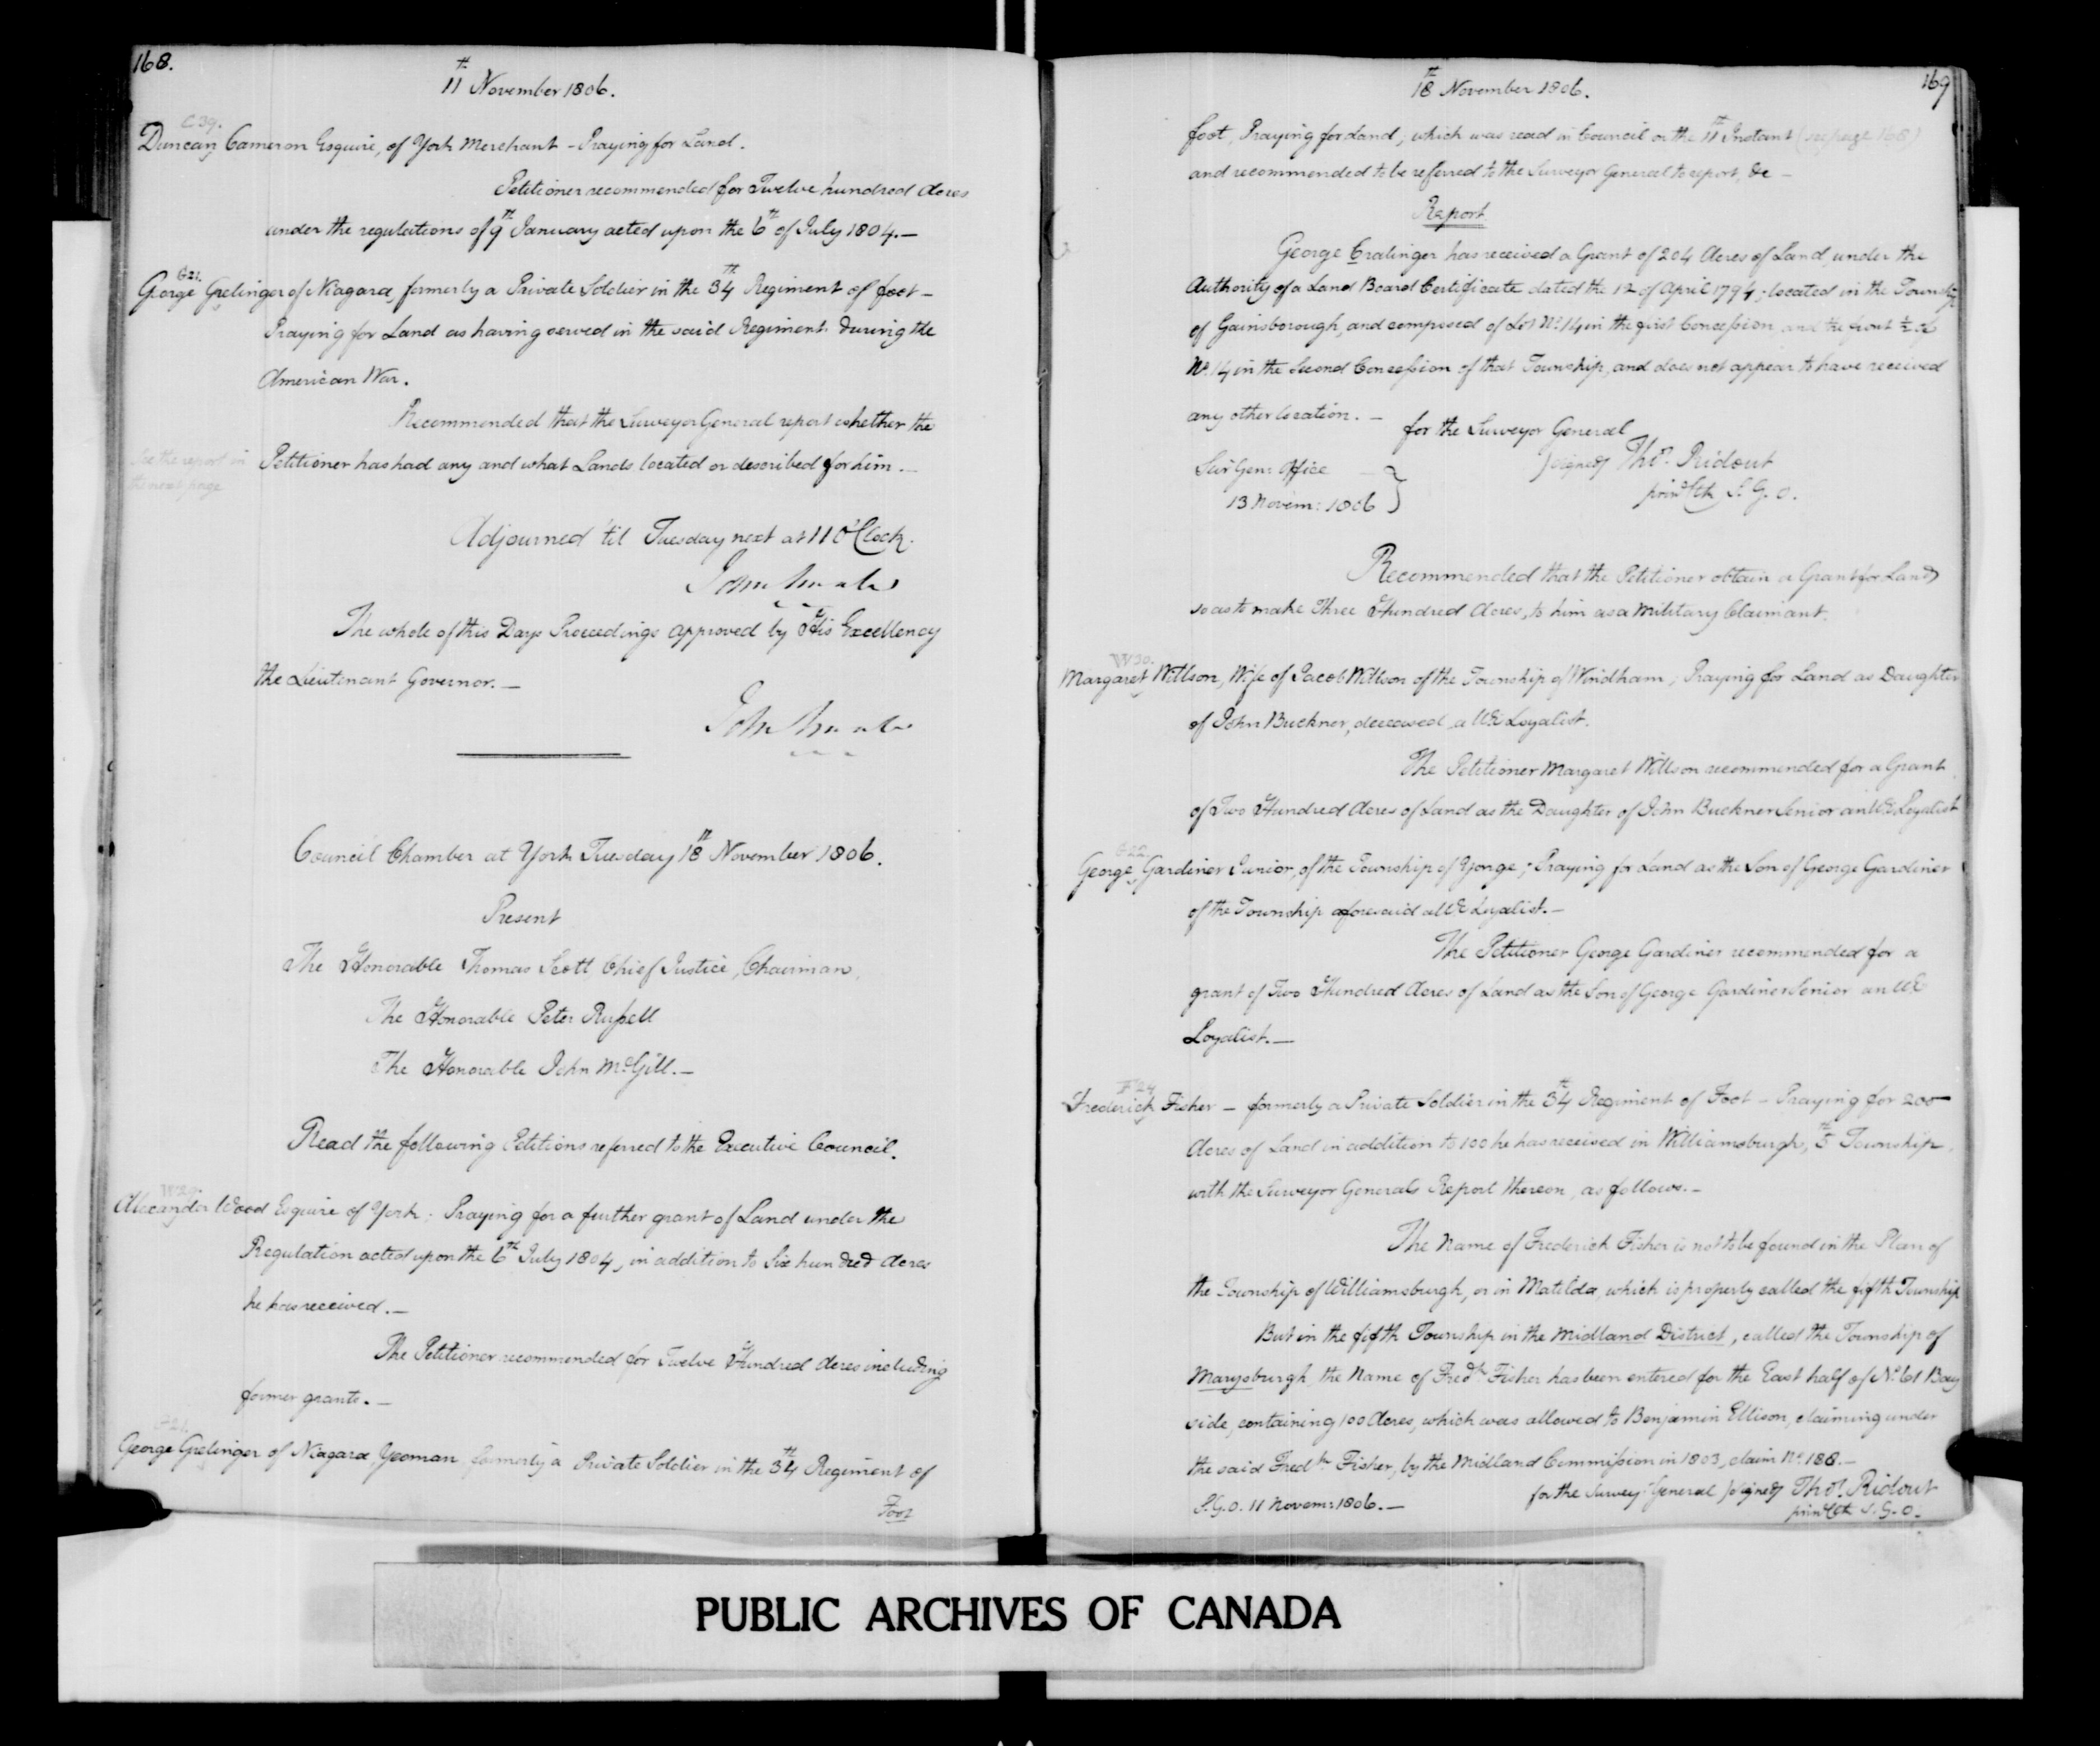 168.
11th November 1806.
C39.
Duncan Cameron Esquire, of York Merchant - Praying for Land.
Petitioner recommended for Twelve hundred Acres
under the regulations of 9th January acted upon the 6th of July 1804.—
G21.
George Grelinger of Niagara, formerly a Private Soldier in the 34th Regiment of foot —
Praying for Land as having served in the said Regiment during the
American War.
Recommended that the Surveyor General report whether the
Petitioner has had any and what Lands located or described for him.—
See the report in
the next page
Adjourned 'til Tuesday next at 11 O'Clock.
John Small
The whole of this Days Proceedings approved by His Excellency
the Lieutenant Governor.—
John Small
Council Chamber at York Tuesday 18th November 1806.
Present
The Honorable Thomas Scott Chief Justice, Chairman,
The Honorable Peter Russell
The Honorable John McGill.—
Read the following Petitions referred to the Executive Council.
W29.
Alexander Wood Esquire of York; Praying for a further grant of Land under the
Regulation acted upon the 6th July 1804, in addition to Six hundred Acres
he has received.—
The Petitioner recommended for Twelve Hundred Acres including
former grants.—
G21.
George Grelinger of Niagara, Yeoman, formerly a Private Soldier in the 34th Regiment of
Foot
169
18th November 1806.
foot, Praying for Land; which was read in Council on the 11th Instant (see page 168)
and recommended to be referred to the Surveyor General to report, &c —
Report
George Cralinger has received a Grant of 204 Acres of Land, under the
Authority of a Land Board Certificate dated the 12 of April 1794; located in the Township
of Gainsborough, and composed of Lot No. 14 in the first Concession and the front ½ of
No. 14 in the Second Concession of that Township, and does not appear to have received
any other location.—
for the Surveyor General
signed Thos. Ridout
Sur Gen: Office
prin Clk S. G. O.
13 Novem: 1806
Recommended that the Petitioner obtain a Grant for Land
so as to make Three Hundred Acres, to him as a Military Claimant.
W30.
Margaret Willson, Wife of Jacob Willson of the Township of Windham; Praying for Land as Daughter
of John Buckner, deceased a UE Loyalist.
The Petitioner Margaret Willson recommended for a Grant
of Two Hundred Acres of Land as the Daughter of John Buckner Senior an UE Loyalist
G22.
George Gardiner Junior, of the Township of Yonge; Praying for Land as the Son of George Gardiner
of the Township aforesaid a UE Loyalist.—
The Petitioner George Gardiner recommended for a
grant of Two Hundred Acres of Land as the Son of George Gardiner Senior an UE
Loyalist.—
F24
Frederick Fisher — formerly a Private Soldier in the 34th Regiment of Foot — Praying for 200
Acres of Land in addition to 100 he has received in Williamsburgh, 5th Township,
with the Surveyor Generals Report thereon, as follows.—
The Name of Frederick Fisher is not to be found in the Plan of
the Township of Williamsburgh, or in Matilda, which is properly called the fifth Township
But in the fifth Township in the Midland District, called the Township of
Marysburgh, the Name of Fredk Fisher has been entered for the East half of No. 61 Bay
side, containing 100 Acres, which was allowed to Benjamin Ellison, claiming under
the said Fredk Fisher, by the Midland Commission in 1803, claim No. 188.—
for the Survey. General signed Thos. Ridout
S.G.O. 11 Novem: 1806.—
prin Clk S. G. O.
PUBLIC ARCHIVES OF CANADA